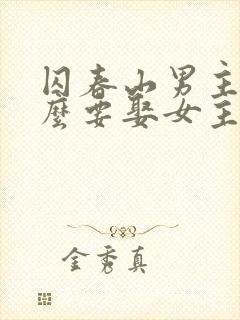 囚春山男主
麼要娶女主
金秀真